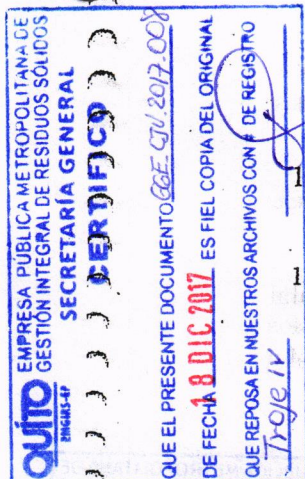 QUITO EMPRESA PÚBLICA METROPOLITANA DE
EMGIRS-EP GESTIÓN INTEGRAL DE RESIDUOS SÓLIDOS
SECRETARÍA GENERAL
CERTIFICO
QUE EL PRESENTE DOCUMENTO GGE.CJU.2017.008
DE FECHA 18 DIC 2017 ES FIEL COPIA DEL ORIGINAL
QUE REPOSA EN NUESTROS ARCHIVOS CON # DE REGISTRO
Troje IV